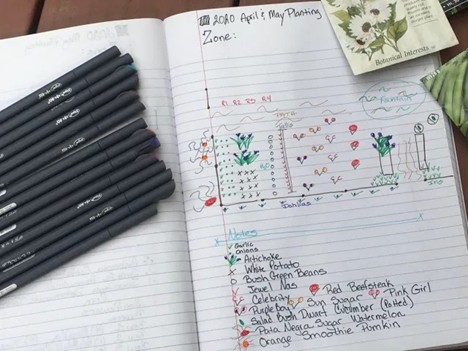 2020 April & May Planting
Zone:
R1 R2 R3 R4
Fountain
Dahlias
Notes
Garlic
onions
Artichoke
White Potato
Bush Green Beans
Jewel Nas
Celebrity Red Beefsteak
Purple Boy Sun Sugar Pink Girl
Salad Bush Dwarf Cucumber (Potted)
Pata Negra Sugar Watermelon
Orange Smoothie Pumkin
Botanical Interests